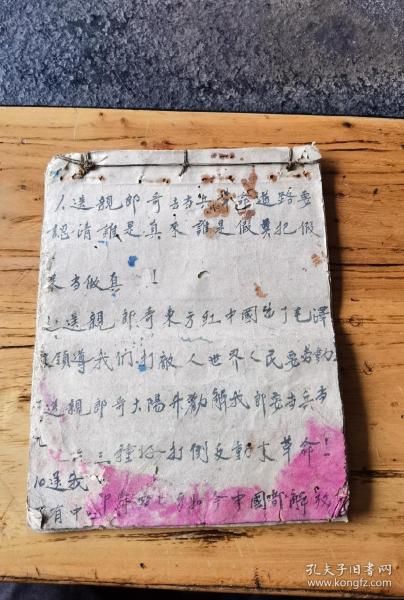 送親郎哥去当兵革命道路要
認清誰是真來誰是假莫把假
來当做真!
送親郎哥東方紅中國出了毛澤
東領導我們打敵人世界人民要劳動
送親郎哥太陽升勸解我郎要当兵
三種 打倒反動大革命!
10送我
有中 中國 解放
孔夫子旧书网
www.kongfz.com